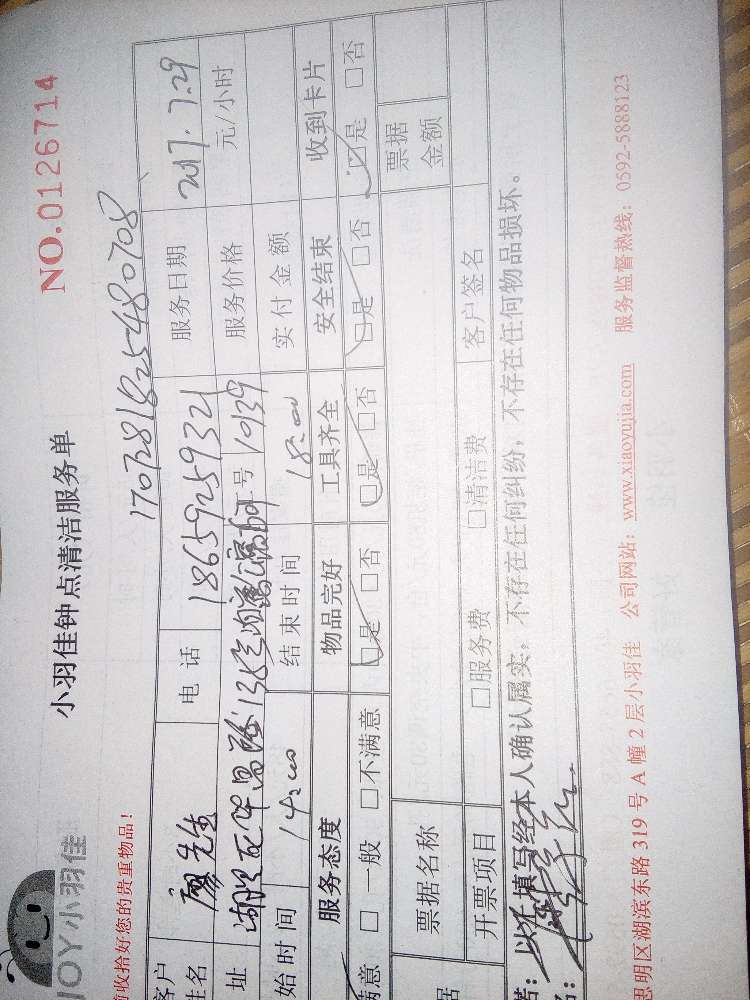 JOY小羽佳
小羽佳钟点清洁服务单
NO.0126714
收拾好您的贵重物品!
1707281825480708
客户 姓名 廖先生 电话 18659259321 服务日期 2017.7.29
址 138 号 1039 服务价格 元/小时
始时间 14:00 结束时间 18:00 实付金额
服务态度 物品完好 工具齐全 安全结束 收到卡片
满意 □一般 □不满意 □是 □否 □是 □否 □是 □否 □是 □否
票据名称 票据金额
据 开票项目 □服务费 □清洁费 客户签名
以上填写经本人确认属实，不存在任何纠纷，不存在任何物品损坏。
思明区湖滨东路 319 号 A 幢 2 层小羽佳 公司网站：www.xiaoyujia.com 服务监督热线：0592-5888123